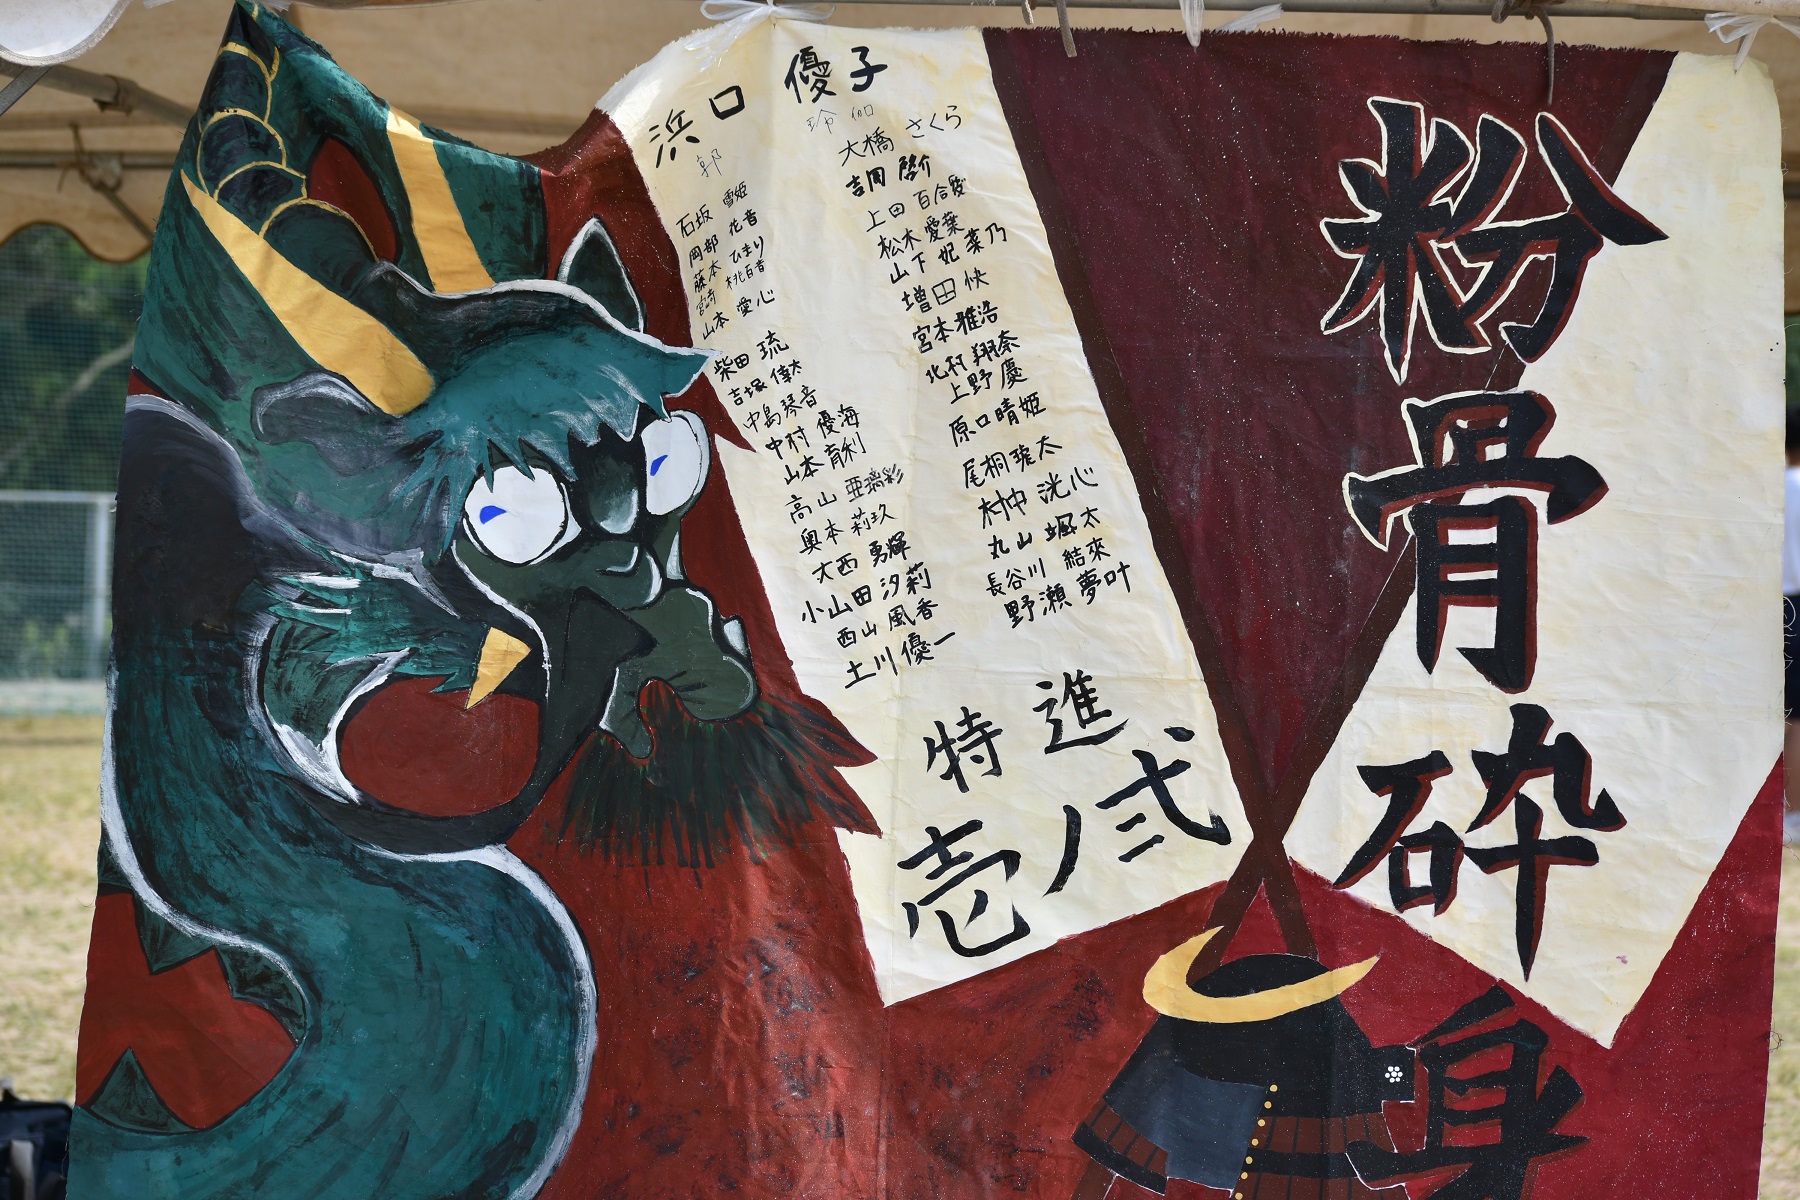 粉骨砕身
浜口 優子
郭 玲伽
大橋 さくら
吉岡 啓介
上田 百合愛
松木 愛菜
山下 妃菜乃
増田 快
宮本 雅浩
北村 翔奈
上野 慶
原口 晴姫
尾桐 琥太
村中 洸心
丸山 颯太
長谷川 結來
野瀬 夢叶
石坂 雪姫
岡部 花音
藤本 ひまり
宮崎 桃百音
山本 愛心
柴田 琉
吉塚 倖太
中島 琴音
中村 優海
山本 育利
高山 亜璃彩
奥本 莉玖
大西 勇輝
小山田 汐莉
西山 風香
土川 優一
特進
壱ノ弐